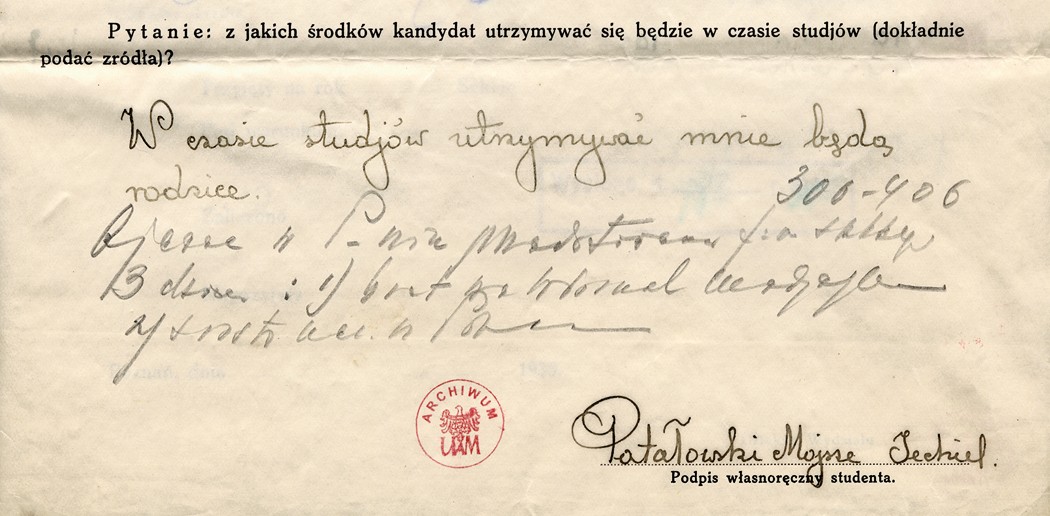 Pytanie: z jakich środków kandydat utrzymywać się będzie w czasie studjów (dokładnie
podać zródła)?
W czasie studjów utrzymywać mnie będą
rodzice.
300-400
Ojciec w P-niu
3 dzieci : 1) brat we Włoszech
2) siostr w
ARCHIWUM
UAM
Patałowski Mojsze Jechiel.
Podpis własnoręczny studenta.